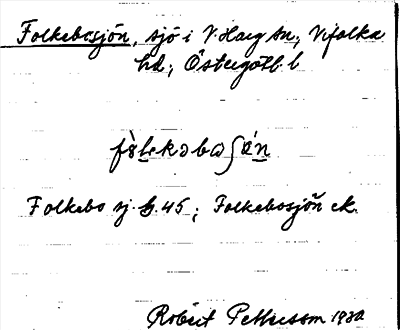 Folkebosjön, sjö i V. Harg sn, Vifolka
hd; Östergötl. l
Folkebo sj. G. 45; Folkebosjön ek.
Robert Pettersson 1932